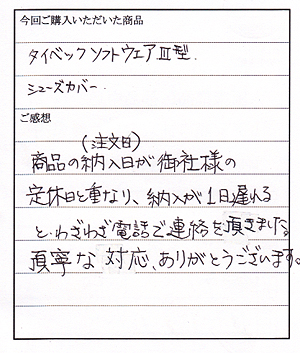 今回ご購入いただいた商品
タイベックソフトウェアⅢ型.
シューズカバー.
ご感想
(注文日)
商品の納入日が御社様の
定休日と重なり、納入が1日遅れる
と.わざわざ電話で連絡を頂きました。
頂寧な対応、ありがとうございます。